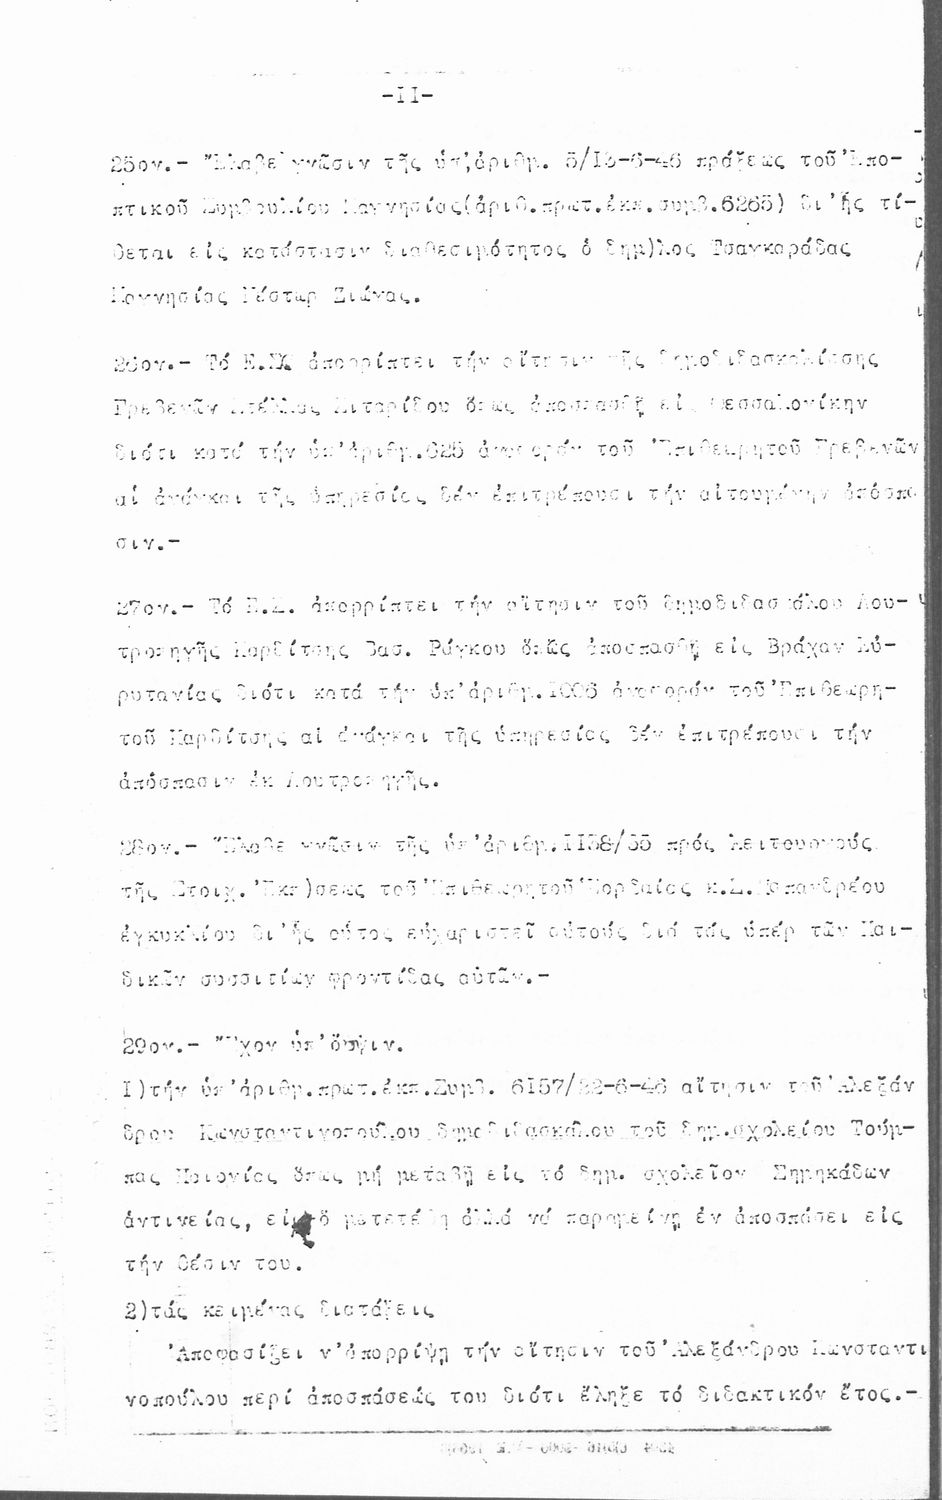 -II-
25ον.- Ἔλαβε γνῶσιν τῆς ὑπ'ἀριθμ. 5/I3-6-46 πράξεως τοῦ Ἐπο-
πτικοῦ Συμβουλίου Μαγνησίας(ἀριθ.πρωτ.ἐκπ.συμβ.6265) δι'ἧς τί-
θεται εἰς κατάστασιν διαθεσιμότητος ὁ δημ)λος Τσαγκαράδας
Μαγνησίας Νέστωρ Ζιώγας.
26ον.- Τό Ε.Σ. ἀπορρίπτει τήν αἴτησιν τῆς δημοδιδασκαλίσσης
Γρεβενῶν Στέλλας ὅπως ἀποσπασθῇ εἰς Θεσσαλονίκην
διότι κατά τήν ὑπ'ἀριθμ.625 ἀναφοράν τοῦ Ἐπιθεωρητοῦ Γρεβενῶν
αἱ ἀνάγκαι τῆς ὑπηρεσίας δέν ἐπιτρέπουσι τήν αἰτουμένην ἀπόσπα
σιν.-
27ον.- Τό Ε.Σ. ἀπορρίπτει τήν αἴτησιν τοῦ δημοδιδασκάλου Λου-
τροπηγῆς Καρδίτσης Βασ. Ράγκου ὅπως ἀποσπασθῇ εἰς Βράχαν Εὐ-
ρυτανίας διότι κατά τήν ὑπ'ἀριθμ.I006 ἀναφοράν τοῦ Ἐπιθεωρη-
τοῦ Καρδίτσης αἱ ἀνάγκαι τῆς ὑπηρεσίας δέν ἐπιτρέπουσι τήν
ἀπόσπασιν ἐκ Λουτροπηγῆς.
28ον.- Ἔλαβε γνῶσιν τῆς ὑπ'ἀριθμ.II58/55 πρός λειτουργούς
τῆς Στοιχ.Ἐκπ)σεως τοῦ Ἐπιθεωρητοῦ Ἐορδαίας κ.Σ.Παπανδρέου
ἐγκυκλίου δι'ἧς οὗτος εὐχαριστεῖ αὐτούς διά τάς ὑπέρ τῶν Παι-
δικῶν συσσιτίων φροντίδας αὐτῶν.-
29ον.- Ἔχον ὑπ'ὄψιν.
I)τήν ὑπ'ἀριθμ.πρωτ.ἐκπ.Συμβ. 6157/22-6-46 αἴτησιν τοῦ Ἀλεξάν
δρου Κωνσταντινοπούλου δημοδιδασκάλου τοῦ δημ.σχολείου Τούμ-
πας Παιονίας ὅπως μή μεταβῇ εἰς τό δημ. σχολεῖον Σημηκάδων
ἀντινείας, εἰς ὅ μετετέθη ἀλλά νά παραμείνῃ ἐν ἀποσπάσει εἰς
τήν θέσιν του.
2)τάς κειμένας διατάξεις
Ἀποφασίζει ν'ἀπορρίψῃ τήν αἴτησιν τοῦ Ἀλεξάνδρου Κωνσταντι
νοπούλου περί ἀποσπάσεώς του διότι ἔληξε τό διδακτικόν ἔτος.-